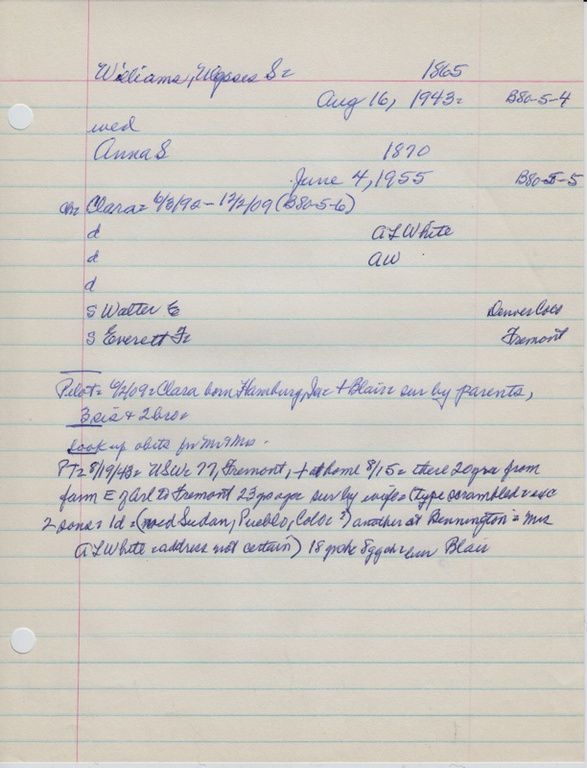 Williams, Ulysses S= 1865
Aug 16, 1943= B80-5-4
wed
Anna S 1870
June 4, 1955 B80-5-5
ch Clara= 6/8/92 - 12/2/09 (B80-5-6)
d ALWhite
d AW
d
S Walter E Denver Colo
S Everett Fr Fremont
Pilot= 6/2/09= Clara born Hamburg, Ia= + Blair= sur by parents,
3 sis + 2 bro=
Look up obits for Mr & Mrs.
PT= 8/19/43= USW= 77, Fremont, + at home 8/15= there 20 yrs from
farm E of Arl to Fremont 23 yrs ago= sur by wife= (type scrambled=
2 sons= 1d= ( Sudan, Pueblo, Colo=?) another at Bennington= Mrs
ALWhite =address not certain) 18 gch 8 ggch= bur Blair